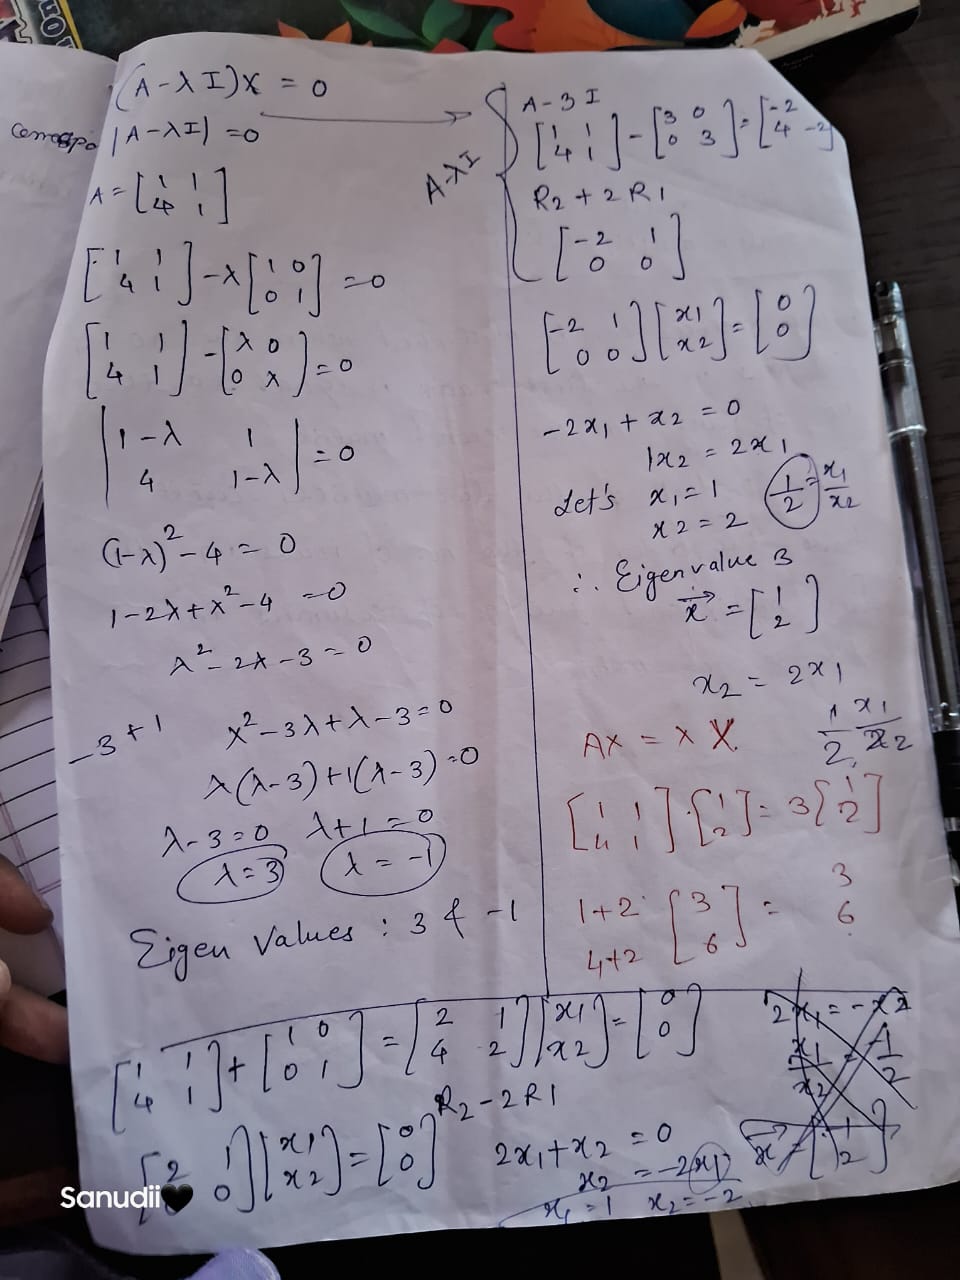 (A-λI)X = 0
|A-λI| = 0
A = [1 1
4 1]
[1 1
4 1] - λ [1 0
0 1] = 0
[1 1
4 1] - [λ 0
0 λ] = 0
|1-λ 1
4 1-λ| = 0
(1-λ)² - 4 = 0
1-2λ+λ²-4 = 0
λ²-2λ-3 = 0
-3 + 1
λ²-3λ+λ-3=0
λ(λ-3)+1(λ-3)=0
λ-3=0 λ+1=0
λ=3 λ=-1
Eigen Values : 3 & -1
AλI
A-3I
[1 1
4 1] - [3 0
0 3] = [-2
4 -2]
R2 + 2R1
[-2 1
0 0]
[-2 1
0 0] [x1
x2] = [0
0]
-2x1 + x2 = 0
1x2 = 2x1
Let's x1 = 1
x2 = 2
1/2 = x1/x2
∴ Eigen value 3
x = [1
2]
x2 = 2x1
1/2 x1/x2
AX = λX
[1 1
4 1] · [1
2] = 3 [1
2]
1+2
4+2 [3
6] = 3
6
[1 1
4 1] + [1 0
0 1] = [2 1
4 2] [x1
x2] = [0
0]
R2 - 2R1
[2 1
0] [x1
x2] = [0
0]
2x1 + x2 = 0
x2 = -2x1
x1 = 1 x2 = -2
2x1 = -x2
x1/x2 = -1/2
x = [1
2]
Sanudii🖤